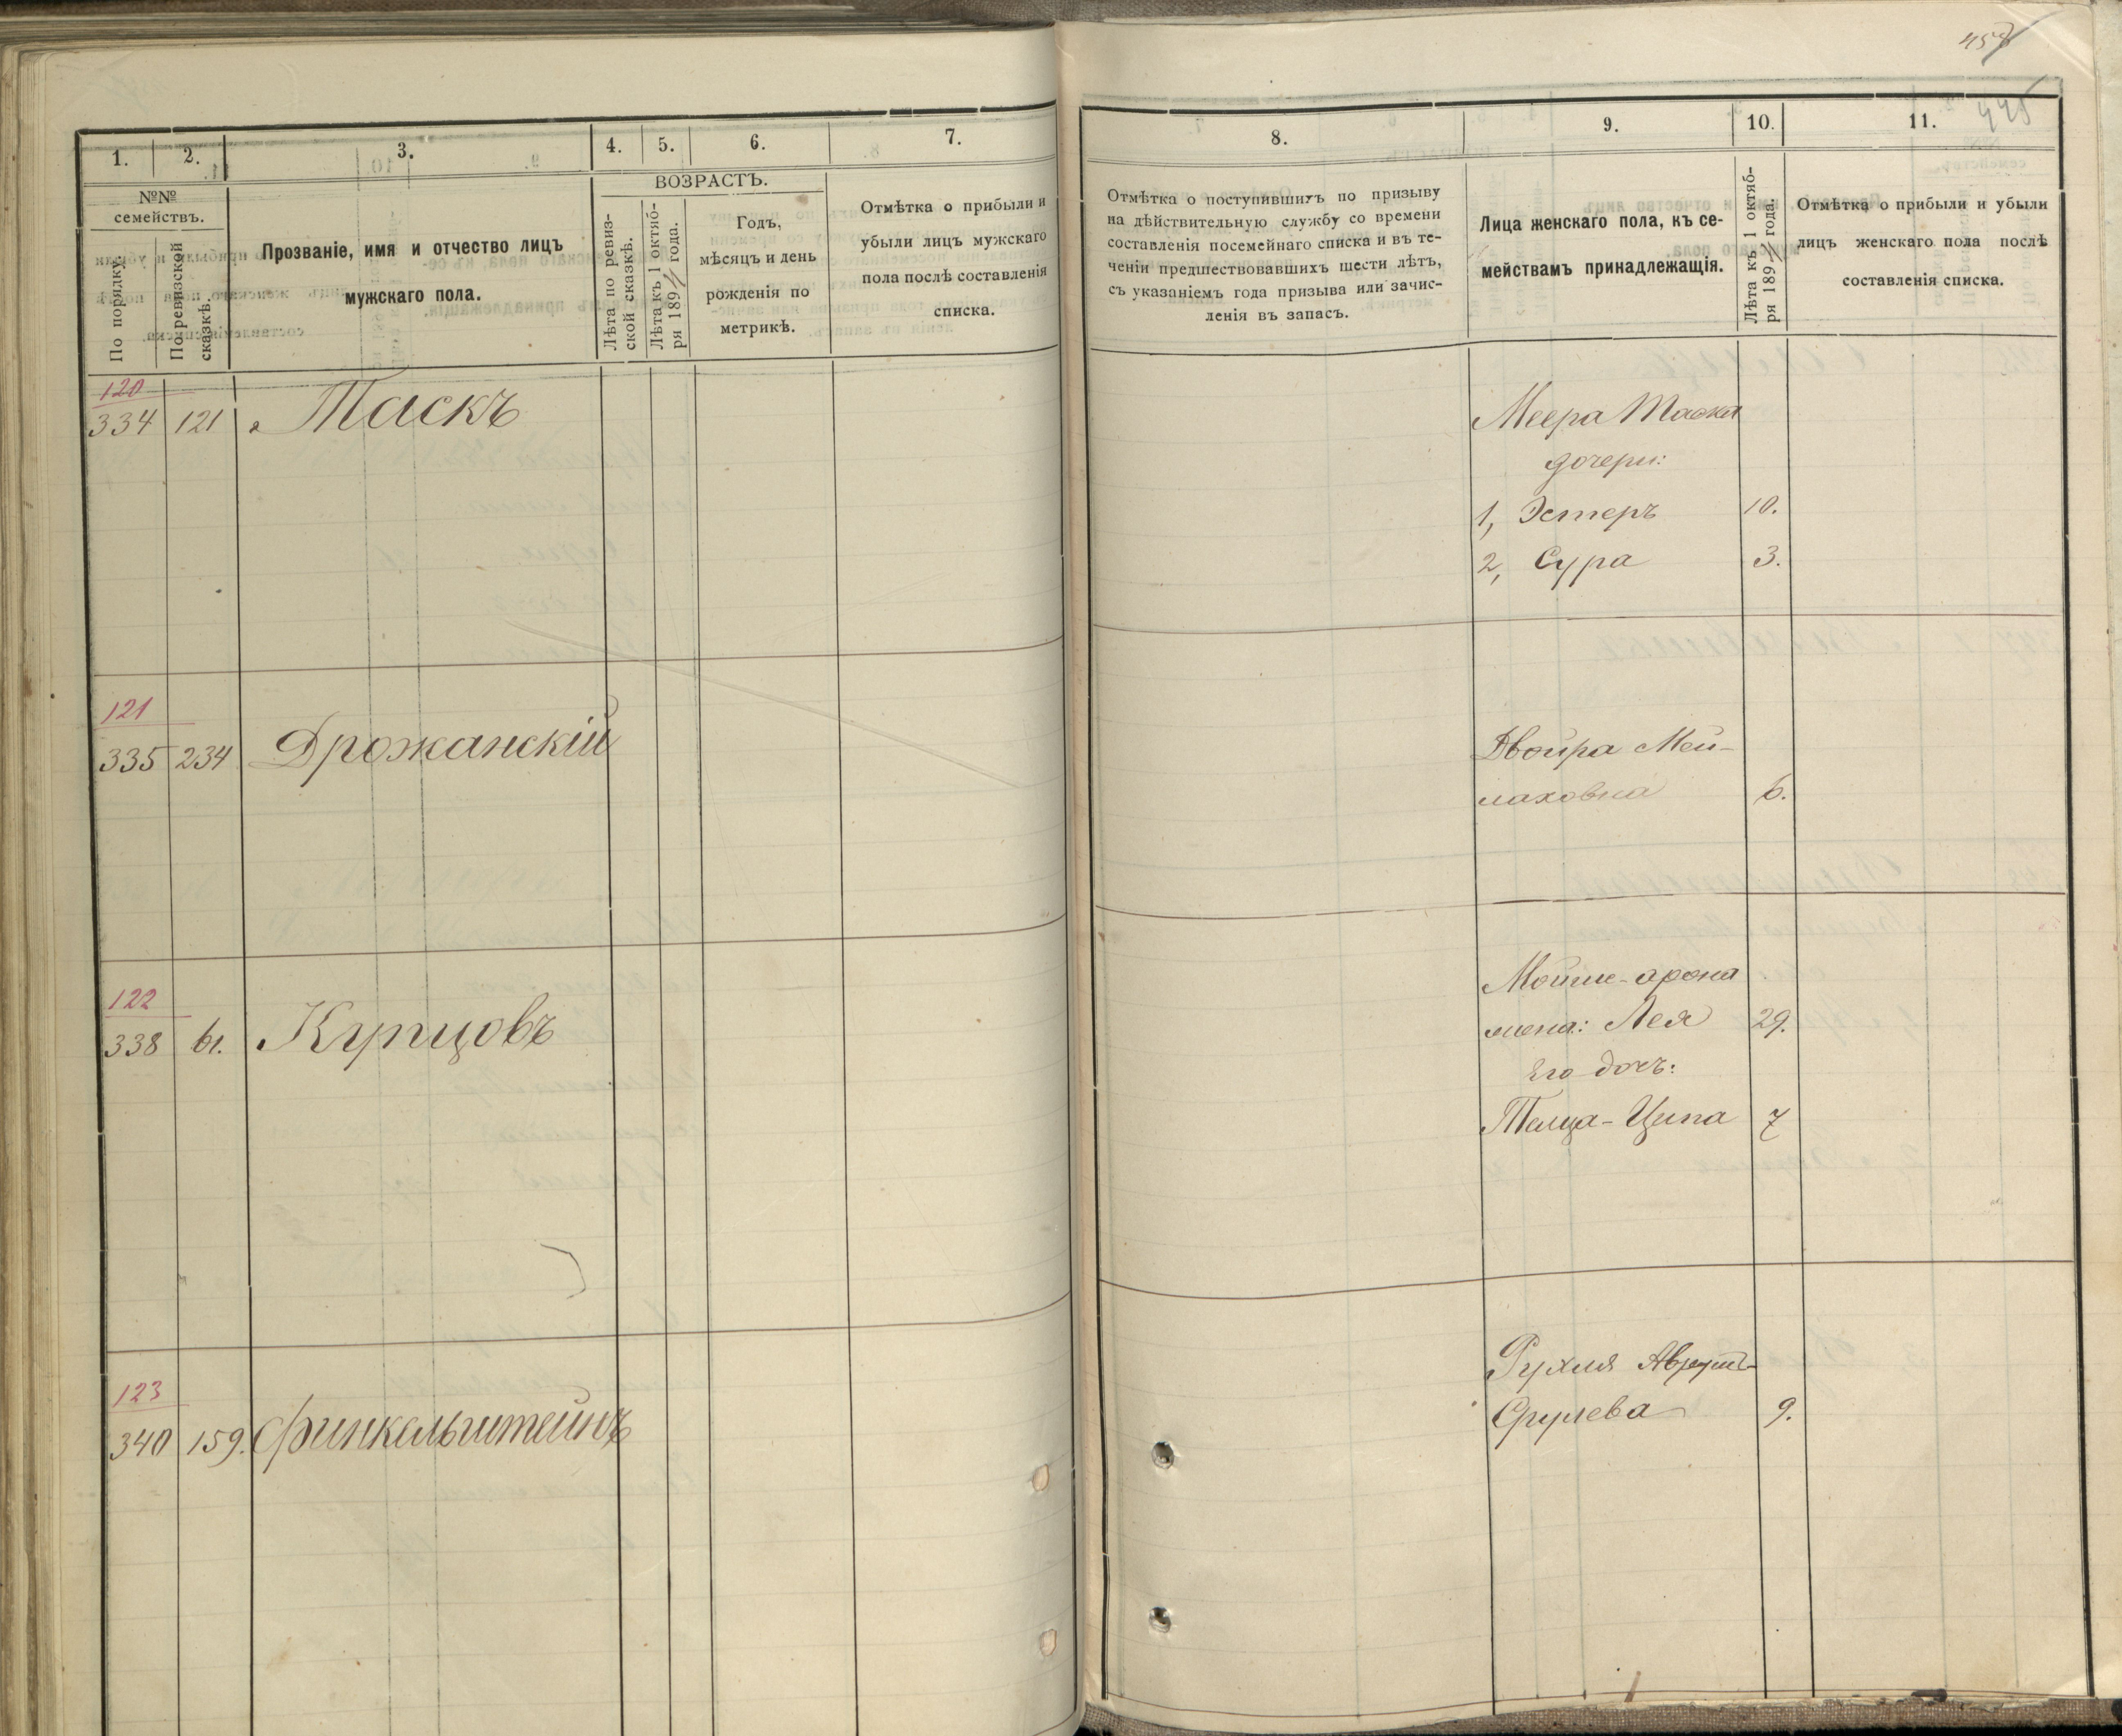 458
445
1.
2.
3.
4.
5.
6.
7.
№№
семействъ.
По порядку.
По ревизской
сказкѣ.
Прозваніе, имя и отчество лицъ
мужскаго пола.
ВОЗРАСТЪ.
Лѣта по ревиз-
ской сказкѣ.
Лѣта къ 1 октяб-
ря 189 года.
Годъ,
мѣсяцъ и день
рожденія по
метрикѣ.
Отмѣтка о прибыли и
убыли лицъ мужскаго
пола послѣ составленія
списка.
8.
9.
10.
11.
Отмѣтка о поступившихъ по призыву
на дѣйствительную службу со времени
составленія посемейнаго списка и въ те-
ченіи предшествовавшихъ шести лѣтъ,
съ указаніемъ года призыва или зачис-
ленія въ запасъ.
Лица женскаго пола, къ се-
мействамъ принадлежащія.
Лѣта къ 1 октяб-
ря 189 года.
Отмѣтка о прибыли и убыли
лицъ женскаго пола послѣ
составленія списка.
120
334 121 Таскъ
Меера Таска
дочери:
1, Эстеръ 10.
2, Сура 3.
121
335 234 Дрожанскій
Двойра Мей-
лаховна 6.
122
338 61. Купцовъ
Мойше-арона
жена: Лея 29.
Его дочь:
Ципа 7
123
340 159. Финкельштейнъ
Рухля
Срулева 9.